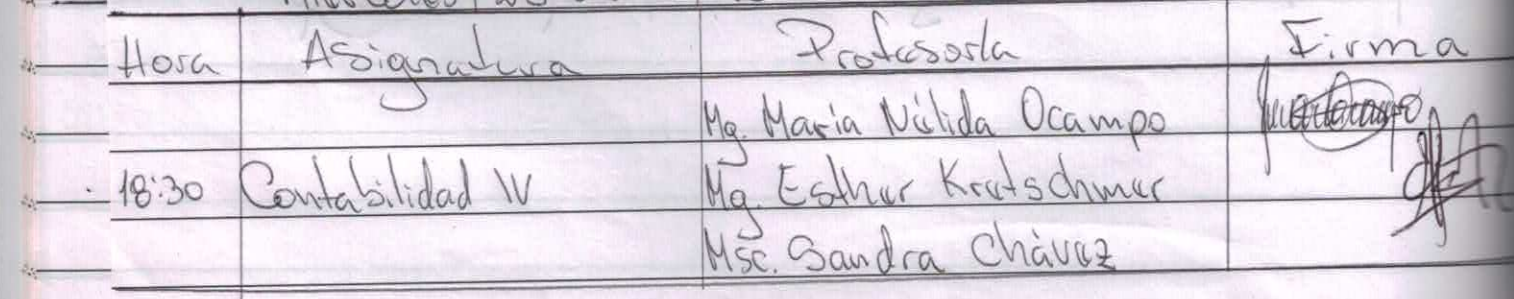 Hora Asignatura Profesor/a Firma
Mg. María Nélida Ocampo
18:30 Contabilidad IV Mg. Esther Kretschmer
Msc. Sandra Chávez